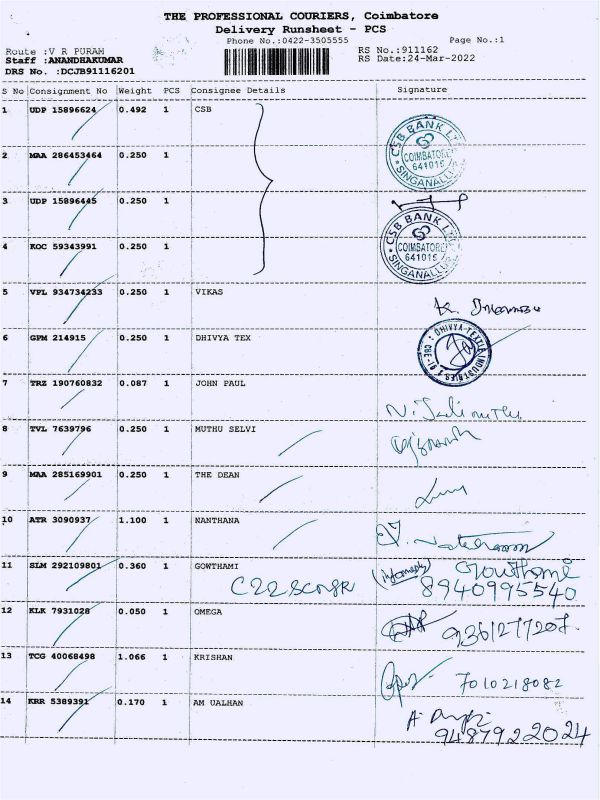 THE PROFESSIONAL COURIERS, Coimbatore
Delivery Runsheet - PCS
Phone No.:0422-3505555 Page No.:1
Route :V R PURAM RS No.:911162
Staff :ANANDHAKUMAR RS Date:24-Mar-2022
DRS No. :DCJB91116201
S No Consignment No Weight PCS Consignee Details Signature
1 UDP 15896624 0.492 1 CSB
CSB BANK LTD
COIMBATORE
641015
SINGANALLUR
2 MAA 286453464 0.250 1
3 UDP 15896445 0.250 1
CSB BANK LTD
COIMBATORE
641015
SINGANALLUR
4 KOC 59343991 0.250 1
5 VPL 934734233 0.250 1 VIKAS
6 GPM 214915 0.250 1 DHIVYA TEX
DHIVYA TEXTILE INDUSTRIES
7 TRZ 190760832 0.087 1 JOHN PAUL
8 TVL 7639796 0.250 1 MUTHU SELVI
9 MAA 285169901 0.250 1 THE DEAN
10 ATR 3090937 1.100 1 NANTHANA
11 SLM 292109801 0.360 1 GOWTHAMI Gowthami
8940995540
12 KLK 7931028 0.050 1 OMEGA 9361277207
13 TCG 40068498 1.066 1 KRISHAN 7010218082
14 KRR 5389391 0.170 1 AM UALHAN
9487922024